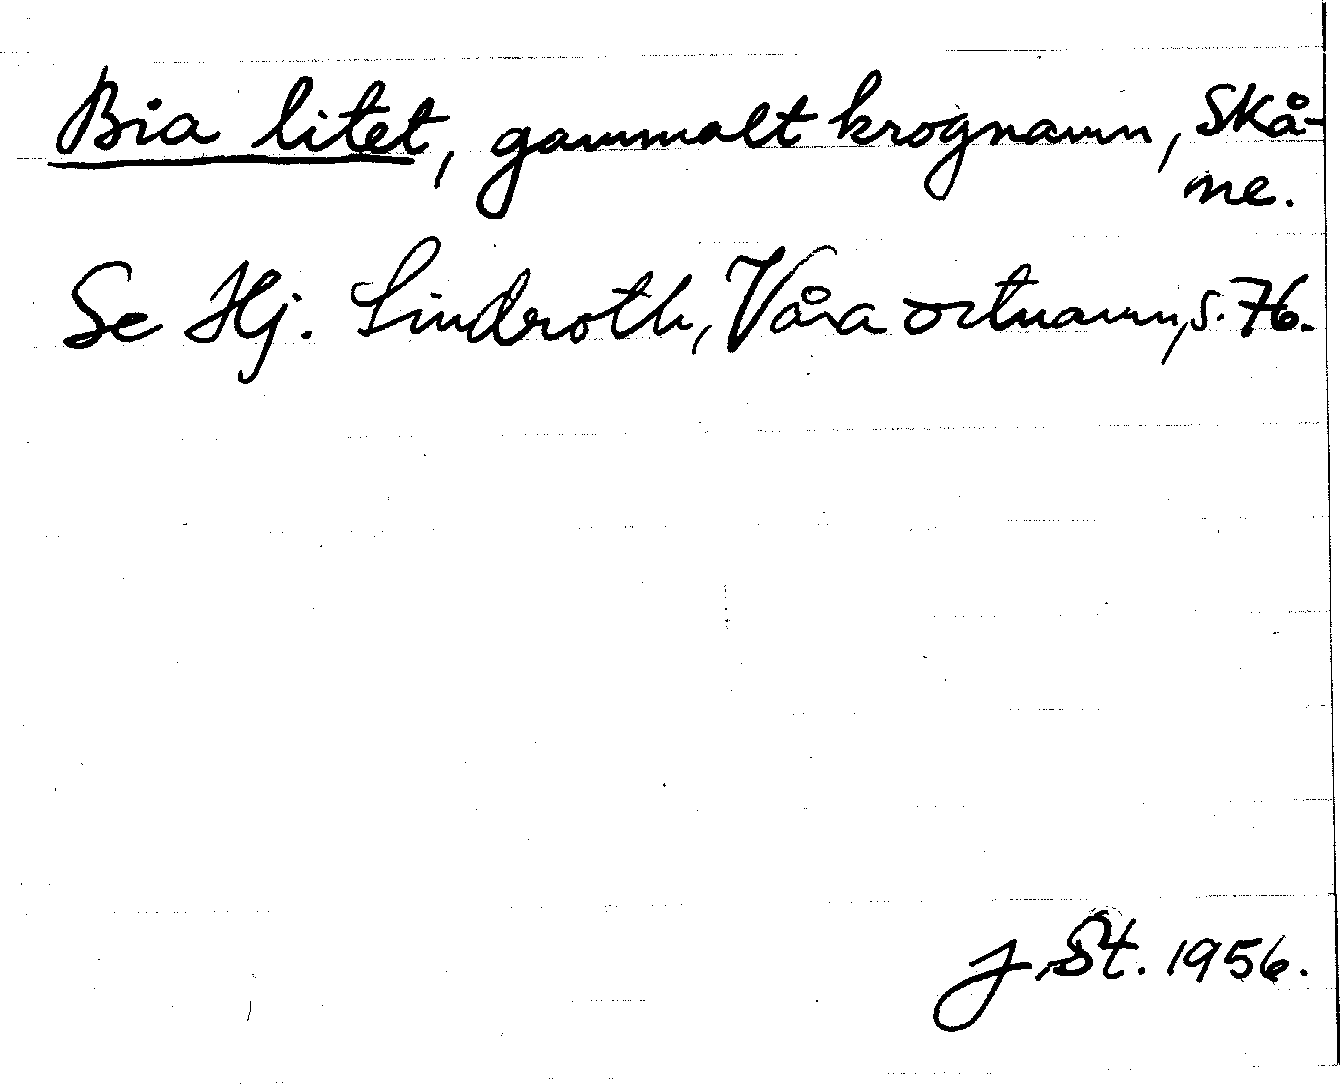 Bia litet, gammalt krognamn, Skå-
ne.
Se Hj. Lindroth, Våra ortnamn, s. 76.
J. St. 1956.